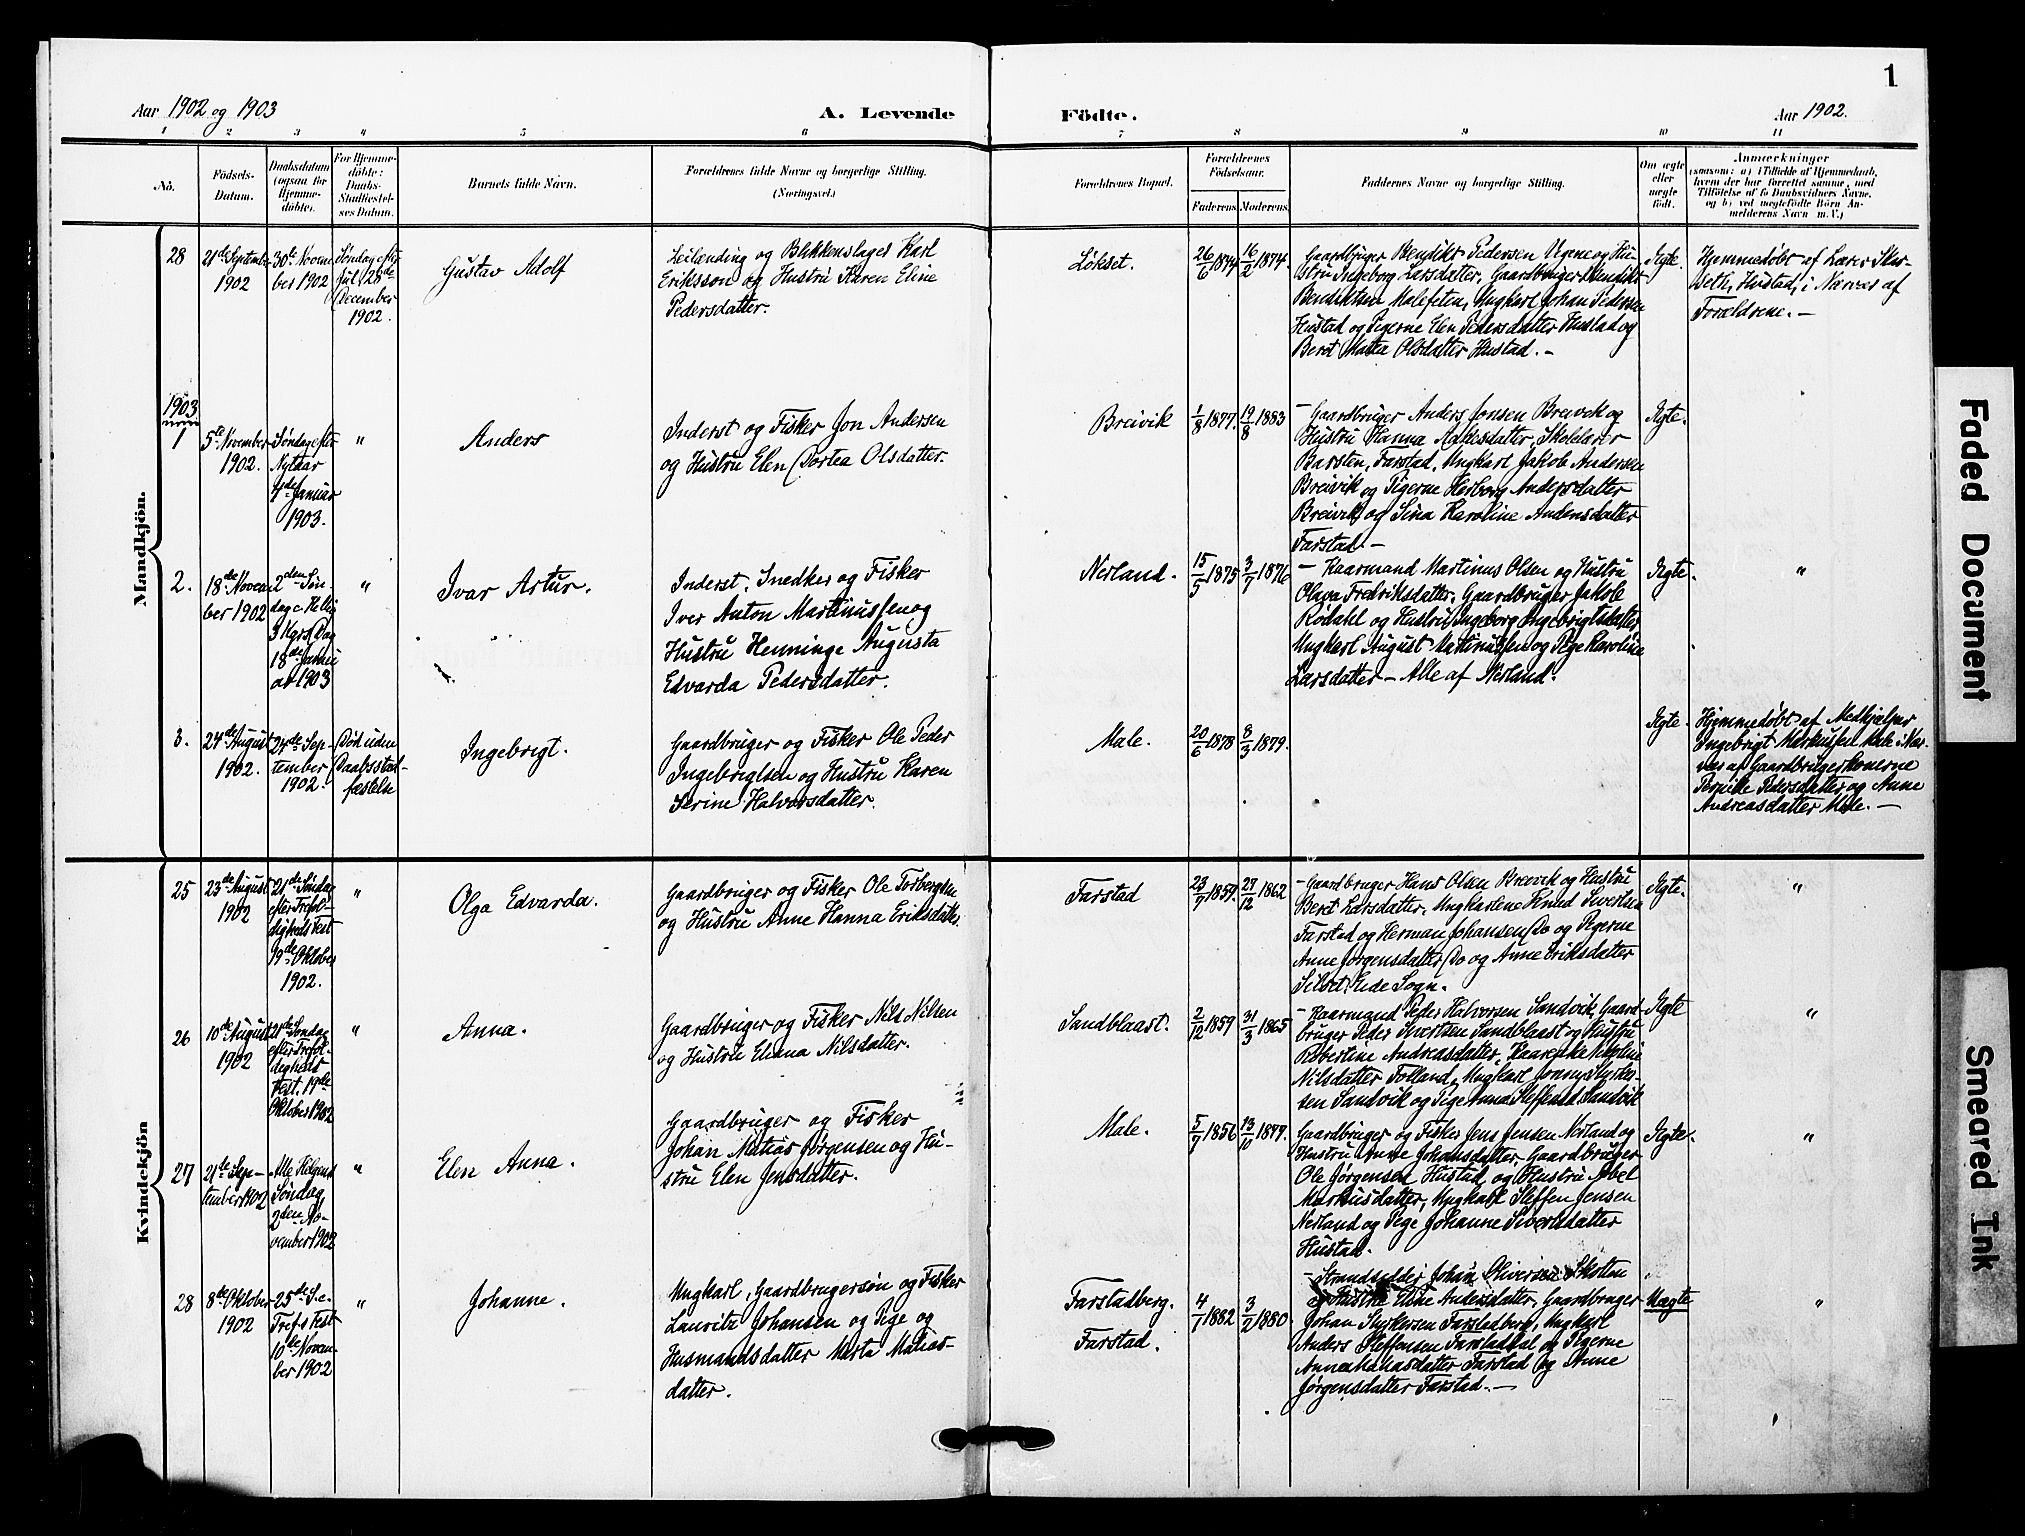 1
Aar 1902 og 1903
A. Levende
Födte.
Aar 1902.
1 2 3 4 5 6 7 8 9 10 11
No.
Födsels-
Datum.
Daabsdatum
(ogsaa for
Hjemme-
döbte).
For Hjemme-
döbte:
Daabs-
Stadfæstel-
ses Datum.
Barnets fulde Navn.
Forældrenes fulde Navne og borgerlige Stilling.
(Næringsvei.)
Forældrenes Bopæl.
Forældrenes
Födselsaar.
Faderens.
Moderens.
Faddernes Navne og borgerlige Stilling.
Om ægte
eller
uægte
födt.
Anmærkninger
(saasom: a) i Tilfælde af Hjemmedaab,
hvem der har forrettet samme, med
Tilföielse af to Daabsvidners Navne,
og b) ved uegtefödte Börn An-
melderens Navn m. V.)
Mandkjön.
28
21de September
1902
30te Novem
ber 1902
Søndag efter
Jul, 28de
December
1902.
Gustav Adolf
Leilænding og Blikkenslager Karl
Eriksson og Hustru Karen Eline
Pedersdatter.
Løkset.
26/6 1874
16/2 1874.
Gaardbruger Bendikt Pedersen Ugene og Hu-
stru Ingeborg Larsdatter, Gaardbruger Bendikt
Bendiktsen Malefeten, Ungkarl Johan Pedersen
Hustad og Pigerne Elen Pedersdatter Hustad og
Beret Matea Olsdatter Hustad. -
Ægte.
Hjemmedøbt af Lærer Skar-
seth, Hustad, i Nærvær af
Forældrene. -
1903
1
5te November
1902.
Søndag efter
Nytaar
4de Januar
1903.
"
Anders
Inderst og Fisker Jon Andersen
og Hustru Elen Dortea Olsdatter.
Breivik
1/8 1877.
19/8 1883
- Gaardbruger Anders Jonsen Breivik og
Hustru Hanna Aakesdatter, Skolelærer
Barsten, Farstad, Ungkarl Jakob Andersen
Breivik og Pigerne Herborg Andersdatter
Breivik og Sina Karoline Andersdatter
Farstad. -
Ægte.
"
2.
18de Novem
ber 1902
2den Søn
dag e. Hellig
3 Kgrs Dag
18de Janu
ar 1903
"
Ivar Artur.
Inderst, Snedker og Fisker
Iver Anton Martinussen og
Hustru Henninge Augusta
Edvarda Pedersdatter.
Nerland.
15/5 1875
3/7 1876
- Kaarmand Martinus Olsen og Hustru
Olava Fredriksdatter, Gaardbruger Jakob
Rødahl og Hustru Ingeborg Ingebrigtsdatter,
Ungkarl August Martinussen og Pige Karoline
Larsdatter - Alle af Nerland.
Ægte.
"
3.
24de August
1902.
24de Sep-
tember
1902.
Død uden
Daabsstad-
fæstelse
Ingebrigt.
Gaardbruger og Fisker Ole Peder
Ingebrigtsen og Hustru Karen
Serine Halvorsdatter.
Male.
20/6 1878
8/3 1879.
Ægte.
Hjemmedøbt af Medhjælper
Ingebrigt Markussen Male i Nær-
vær af Gaardbrugerkonerne
Pernille Pedersdatter og Anne
Andreasdatter Male. -
Kvindekjön
25
23de August
1902
21de Søndag
efter Trefol-
digheds Fest
19de Oktober
1902.
"
Olga Edvarda.
Gaardbruger og Fisker Ole Torbergsen
og Hustru Anne Hanna Eriksdatter.
Farstad
23/7 1859.
27/12 1862
- Gaardbruger Hans Olsen Breivik og Hustru
Beret Larsdatter, Ungkarlene Knud Sivertsen
Farstad og Herman Johansen Do og Pigerne
Anne Jørgensdatter Do og Anne Eriksdatter
Silset, Eide Sogn.
Ægte.
"
26
10de August
1902
21de Søndag
efter Trefol-
digheds
Fest. 19de
Oktober 1902
"
Anna.
Gaardbruger og Fisker Nils Nilsen
og Hustru Eliana Nilsdatter.
Sandblaast.
2/12 1859
31/3 1865
- Kaarmand Peder Halvorsen Sandvik, Gaard-
bruger Peder Sivertsen Sandblaast og Hustru
Robertine Andreasdatter, Kaarenke
Nilsdatter Folland, Ungkarl
sen Sandvik og Pige Anna Steffensd. Sandvik
Ægte
"
27
21de Sep-
tember 1902
Alle Helgens
Søndag
2den No-
vember 1902
"
Elen Anna.
Gaardbruger og Fisker
Johan Matias Jørgensen og Hu-
stru Elen Jensdatter.
Male.
5/7 1856
13/10 1877.
Gaardbruger og Fisker Jens Jensen Nerland og
Hustru Anne Johansdatter, Gaardbruger
Ole Jørgensen Hustad og Hustru Abel
Markusdatter, Ungkarl Steffen Jensen
Nerland og Pige Johanne Sivertsdatter
Hustad.
Ægte.
"
28
8de Oktober
1902
25de S. e.
Tref.s Fest
16de Novem-
ber 1902
"
Johanne.
Ungkarl, Gaardbrugersøn og Fisker
Lauritz Johansen og Pige og
Husmandsdatter Marta Matias-
datter.
Farstadberg.
Farstad.
4/1 1882
3/2 1880.
- Strandsidder Johan Oliversen Skotten
og Hustru Eline Andersdatter, Gaardbruger
Johan Styrkersen Farstadberg, Ungkarl
Anders Steffensen Farstaddal og Pigerne
Anne datter Farstad og Anne
Jørgensdatter Farstad. -
Uægte
"
Faded Document
Smeared Ink